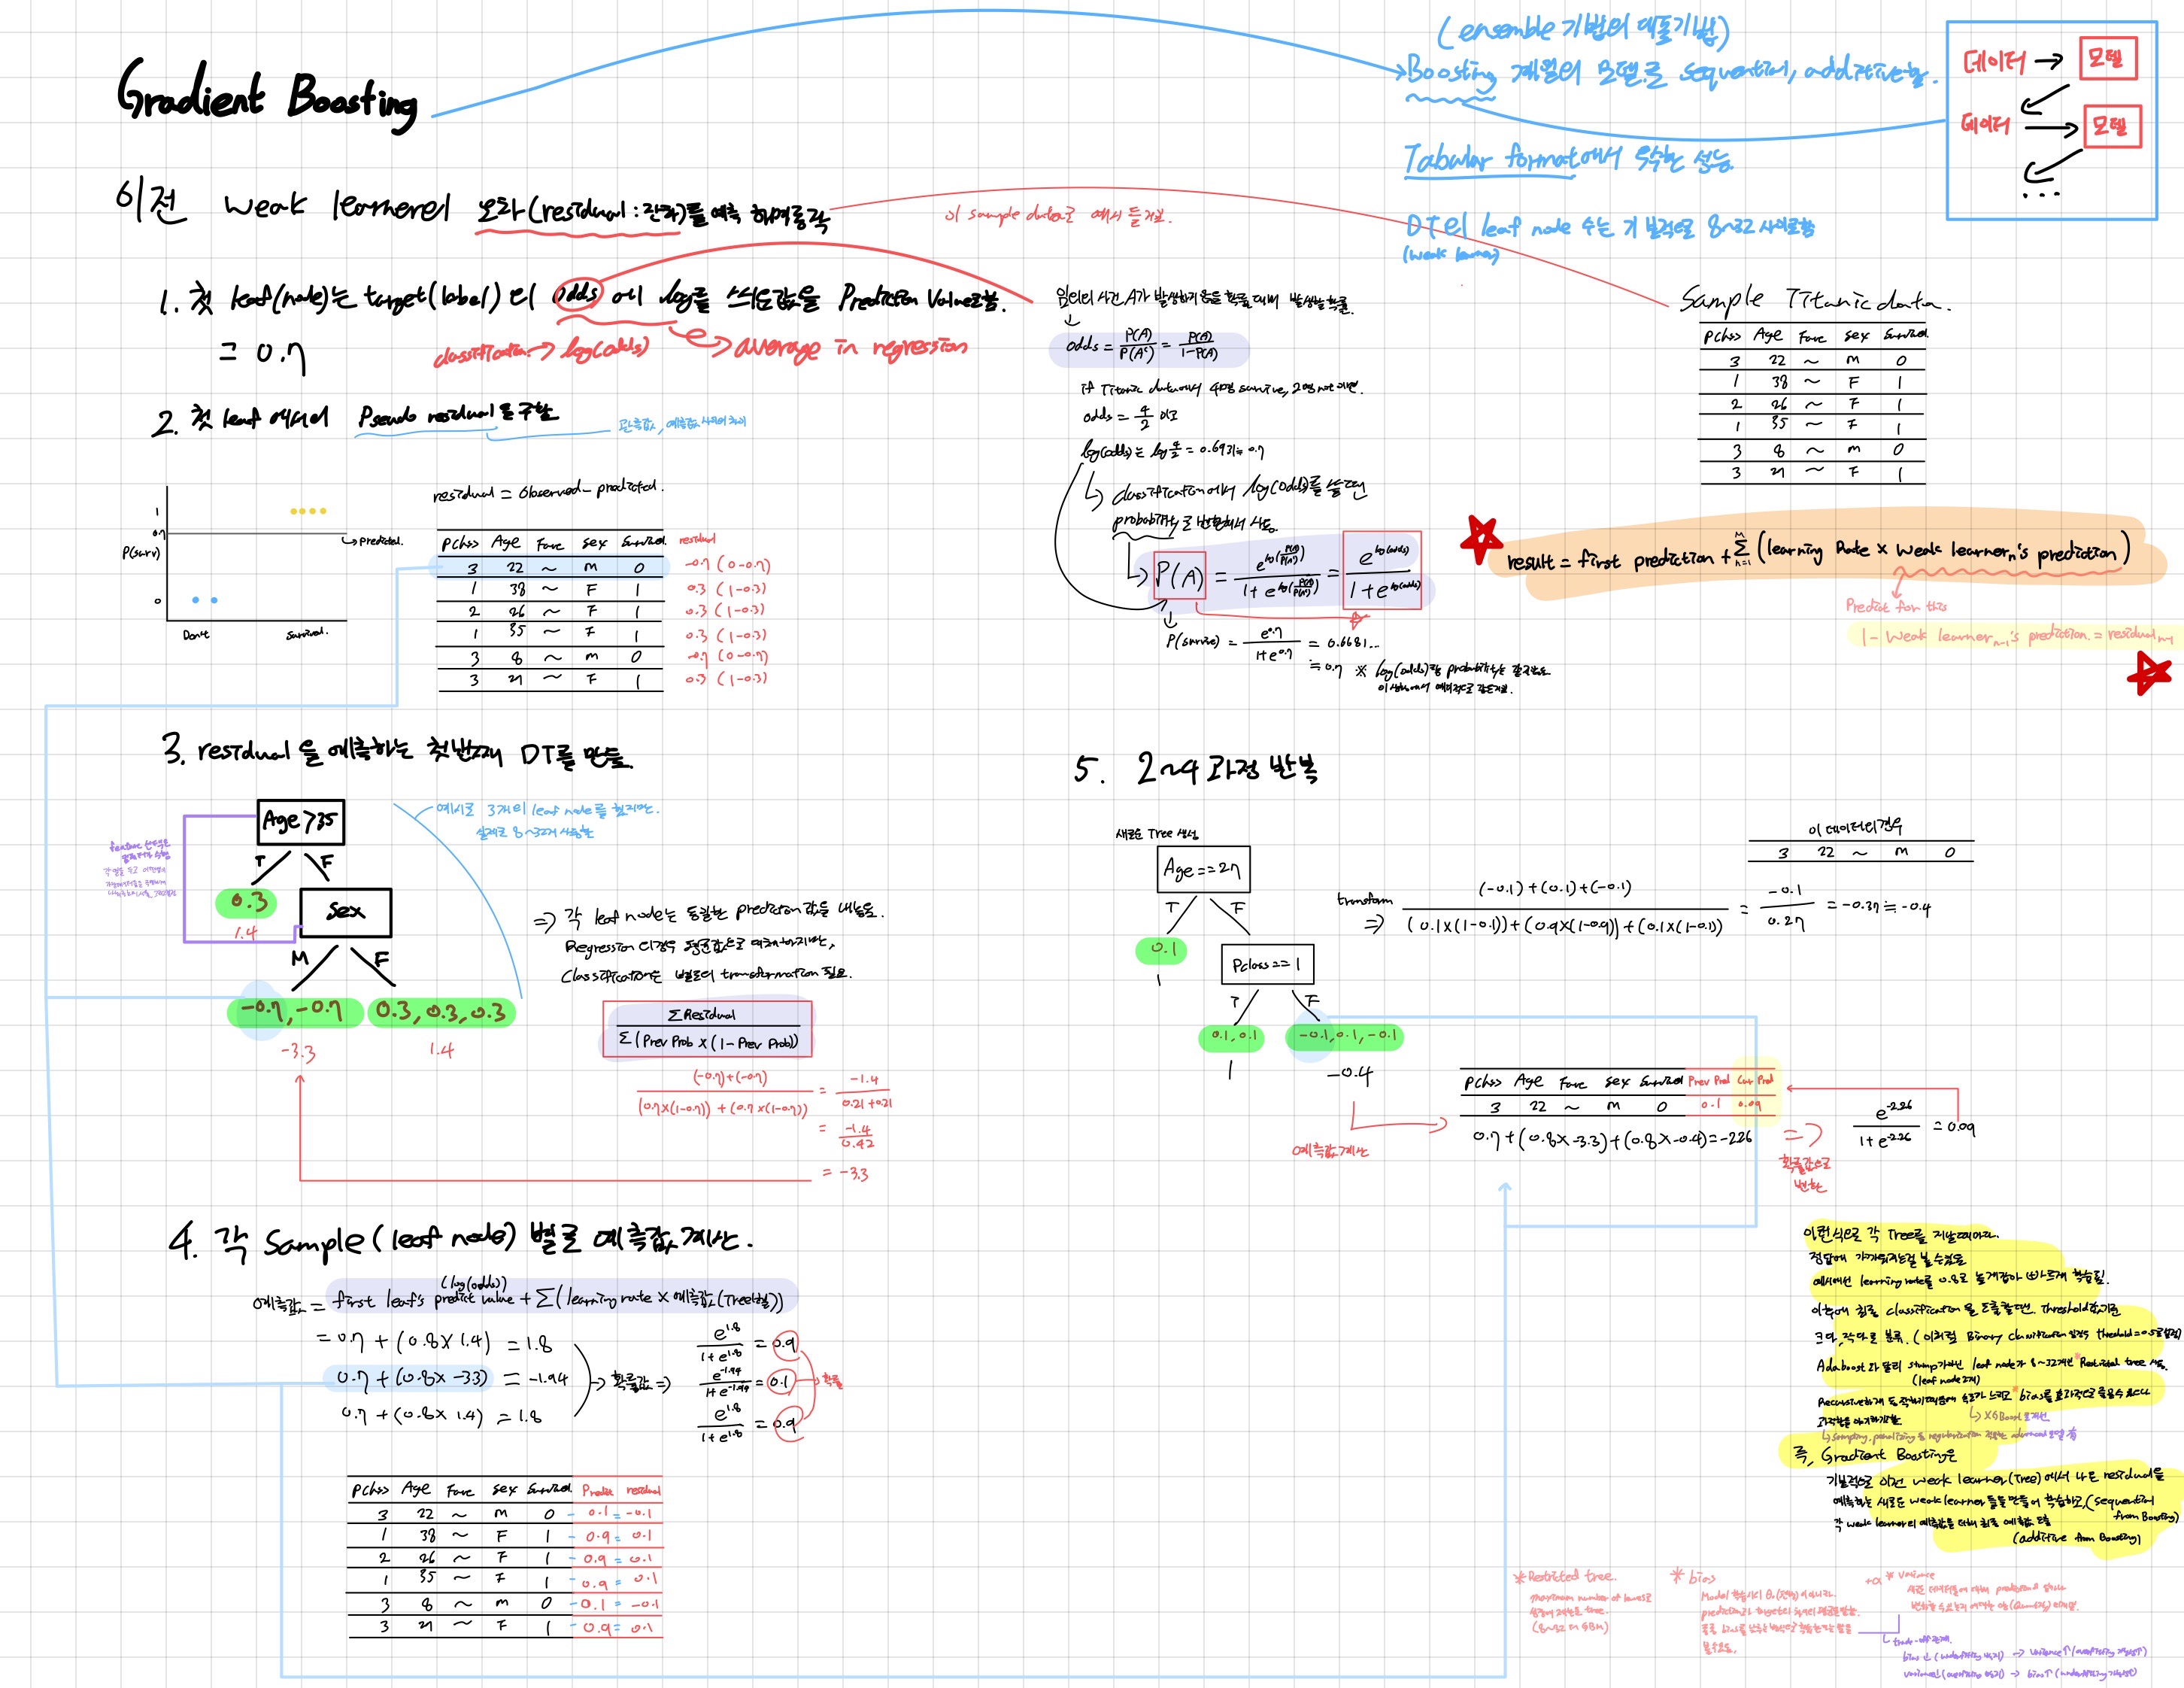 Gradient Boosting
(ensemble 기법의 대표기법)
Boosting 계열의 모델로 sequential, additive함.
Tabular format에서 우수한 성능
DT의 leaf node 수는 기본적으로 8~32 사이로함
(weak learner)
데이터 → 모델
데이터 → 모델
....
이전 weak learner의 오차(residual : 잔차)를 예측 해
이 sample data로 예시 들거임.
1. 첫 leaf(node)는 target(label)의 odds에 log를 씌운값을 Prediction Value로함.
= 0.7
classification → log(odds)
average in regression
임의의 사건 A가 발생하지않을 확률 대비 발생할 확률.
odds = P(A)/P(Aᶜ) = P(A)/1-P(A)
if Titanic data에서 4명 survive, 2명 not 이면.
odds = 4/2 이고
log(odds)는 log 4/2 = 0.6931 ≒ 0.7
classification에서 log(odds)를 쓸때
probability로 변환해서 사용.
P(A) = e^log(P(A)/P(Aᶜ)) / 1+e^log(P(A)/P(Aᶜ)) = e^log(odds) / 1+e^log(odds)
P(survive) = e^0.7 / 1+e^0.7 = 0.6681...
≒ 0.7 ※ log(odds)랑 probability는
Sample Titanic data.
Pclass Age Fare Sex Survived
3 22 ~ M 0
1 38 ~ F 1
2 26 ~ F 1
1 35 ~ F 1
3 8 ~ M 0
3 27 ~ F 1
result = first prediction + Σ(n=1, M) (learning Rate × weak learner n's prediction)
Predict for this
1 - weak learner n-1's prediction. = residual n-1
2. 첫 leaf에서의 Pseudo residual을 구함
관측값, 예측값 사이의 차이
residual = Observed - predicted.
1
0.7
P(surv)
0
predicted.
Don't
Survived.
Pclass Age Fare Sex Survived residual
3 22 ~ M 0 -0.7 (0-0.7)
1 38 ~ F 1 0.3 (1-0.3)
2 26 ~ F 1 0.3 (1-0.3)
1 35 ~ F 1 0.3 (1-0.3)
3 8 ~ M 0 -0.7 (0-0.7)
3 27 ~ F 1 0.3 (1-0.3)
3. residual을 예측하는 첫번째 DT를 만듦.
예시로 3개의 leaf node를 했지만.
실제로 8~32개 사용함
Age > 35
T F
0.3
1.4
Sex
M F
-0.7, -0.7
0.3, 0.3, 0.3
-3.3
1.4
⇒ 각 leaf node는 동일한 prediction값을 내놓음.
Regression의 경우 평균값으로 대체하지만,
Classification은 별도의 transformation 필요.
ΣResidual / Σ(Prev Prob × (1 - Prev Prob))
(-0.7)+(-0.7) / (0.7×(1-0.7)) + (0.7×(1-0.7)) = -1.4 / 0.21+0.21
= -1.4 / 0.42
= -3.3
4. 각 Sample(leaf node) 별로 예측값 계산.
(log(odds))
예측값 = first leaf's predict value + Σ(learning rate × 예측값(Tree별))
= 0.7 + (0.8 × 1.4) = 1.8
0.7 + (0.8 × -3.3) = -1.94
0.7 + (0.8 × 1.4) = 1.8
→ 확률값 ⇒
e^1.8 / 1+e^1.8 = 0.9
e^-1.94 / 1+e^-1.94 = 0.1
e^1.8 / 1+e^1.8 = 0.9
확률
Pclass Age Fare Sex Survived Predict residual
3 22 ~ M 0 - 0.1 = -0.1
1 38 ~ F 1 - 0.9 = 0.1
2 26 ~ F 1 - 0.9 = 0.1
1 35 ~ F 1 - 0.9 = 0.1
3 8 ~ M 0 - 0.1 = -0.1
3 27 ~ F 1 - 0.9 = 0.1
5. 2~4 과정 반복
새로운 Tree 생성
Age == 27
T F
0.1
1
Pclass == 1
T F
0.1, 0.1
-0.1, 0.1, -0.1
1
-0.4
이 데이터의 경우
3 22 ~ M 0
transform
⇒ (-0.1)+(0.1)+(-0.1) / (0.1×(1-0.1))+(0.9×(1-0.9))+(0.1×(1-0.1)) = -0.1 / 0.27 = -0.37 ≒ -0.4
Pclass Age Fare Sex Survived Prev Pred Cur Pred
3 22 ~ M 0 0.1 0.09
예측값 계산
0.7 + (0.8 × -3.3) + (0.8 × -0.4) = -2.26
⇒
확률값으로
변환
e^-2.26 / 1+e^-2.26 = 0.09
이런식으로 각 Tree를 지날때마다.
정답에 가까워지는걸 볼 수있음
예시에선 learning rate를 0.8로 높게잡아 빠르게 학습됨.
이후에 최종 classification을 도출할땐. Threshold값 기준
크다, 작다로 분류.
Adaboost와 달리 stump가아닌 leaf node가 8~32개인 *Restricted tree 사용.
(leaf node 2개)
Recursive하게 동작하기때문에 속도가 느리고 *bias를
XGBoost로 개선
즉, Gradient Boosting은
기본적으로 이전 weak learner(Tree)에서 나온 residual을
예측하는 새로운 weak learner들을 만들어 학습하고, (sequential from Boosting)
각 weak learner의 예측값을 더해 최종 예측값 도출
(additive from Boosting)
* Restricted tree.
maximum number of leaves로
제한하는 tree.
(8~32 in GBM)
* bias
+α * variance
trade-off 관계.
bias ↓ (underfitting 방지) → variance ↑ (overfitting 가능성↑)
variance ↓ (overfitting 방지) → bias ↑ (underfitting 가능성↑)